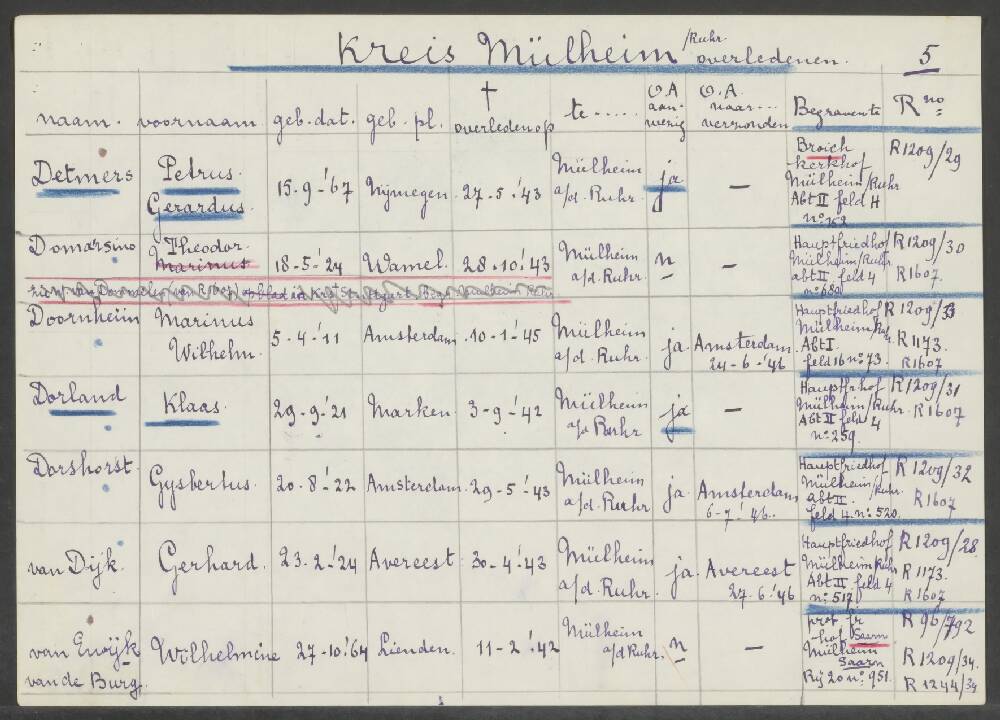 Kreis Mülheim /Ruhr overledenen. 5
naam. voornaam geb. dat. geb. pl. † overleden op te ..... O.A aan-wezig O.A. naar... verzonden Begraven te R no
Detmers Petrus Gerardus. 15-9-'67 Nijmegen 27-5-'43 Mülheim a/d. Ruhr. ja — Broich -kerkhof Mülheim/Ruhr Abt II feld H no 162 R1209/29
Domarsino Theodor. Marinus 18-5-'24 Wamel. 28-10-'43 Mülheim a/d. Ruhr. n — Hauptfriedhof Mülheim/Ruhr abt II feld 4 no 680 R1209/30 R1607.
Doornheim Marinus Wilhelm. 5-4-'11 Amsterdam 10-1-'45 Mülheim a/d. Ruhr. ja Amsterdam 24-6-'46 Hauptfriedhof Mülheim/Ruhr. Abt I. feld 16 no 73. R1209/33 R1173. R1607
Dorland Klaas. 29-9-'21 Marken 3-9-'42 Mülheim a/d Ruhr ja — Hauptfrhof Mülheim/Ruhr. Abt II feld 4 no 259. R1209/31 R1607
Dorshorst Gysbertus. 20-8-'22 Amsterdam 29-5-'43 Mülheim a/d. Ruhr ja Amsterdam 6-7-'46. Hauptfriedhof Mülheim/Ruhr. abt II. feld 4. no 520. R1209/32 R1607
van Dijk. Gerhard. 23-2-'24 Avereest 30-4-'43 Mülheim a/d. Ruhr. ja Avereest 27-6-'46 Hauptfriedhof Mülheim Ruhr Abt II feld 4 no 517 R1209/28 R1173. R1607
van Ewijk van de Burg. Wilhelmine 27-10-'64 Lienden. 11-2-'42 Mülheim a/d Ruhr. n — prot. fr -hof Saarn Mülheim Saarn Rij 20 no 951. R96/792 R1209/34. R1244/34